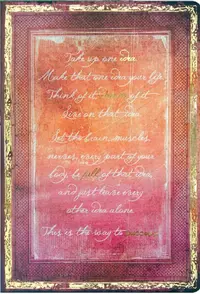 Take up one idea.
Make that one idea your life
Think of it, dream of it
Live on that idea
Let the brain, muscles,
nerves, every part of your
body, be full of that idea,
and just leave every
other idea alone.
This is the way to success